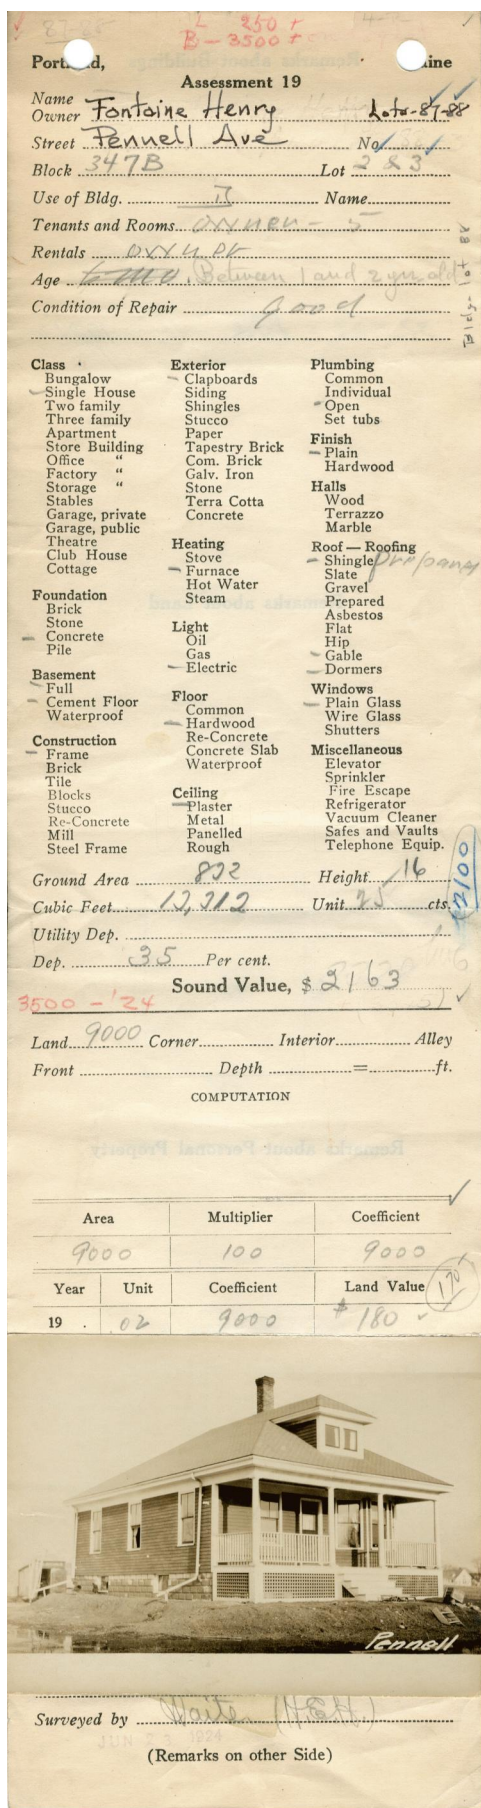 L 250 +
B - 3500 +
87-88
Assessment 19
Name
Owner Fontaine Henry Lots-87-88
Street Pennell Ave No
Block 347B Lot 2 & 3
Use of Bldg. Name
Tenants and Rooms owner - 5
Rentals owner
Age 6 mo. Between 1 and 2 yrs. old
Bldg- lot 88
Condition of Repair good
Class
Bungalow
Single House
Two family
Three family
Apartment
Store Building
Office "
Factory "
Storage "
Stables
Garage, private
Garage, public
Theatre
Club House
Cottage
Foundation
Brick
Stone
Concrete
Pile
Basement
Full
Cement Floor
Waterproof
Construction
Frame
Brick
Tile
Blocks
Stucco
Re-Concrete
Mill
Steel Frame
Exterior
Clapboards
Siding
Shingles
Stucco
Paper
Tapestry Brick
Com. Brick
Galv. Iron
Stone
Terra Cotta
Concrete
Heating
Stove
Furnace
Hot Water
Steam
Light
Oil
Gas
Electric
Floor
Common
Hardwood
Re-Concrete
Concrete Slab
Waterproof
Ceiling
Plaster
Metal
Panelled
Rough
Plumbing
Common
Individual
Open
Set tubs
Finish
Plain
Hardwood
Halls
Wood
Terrazzo
Marble
Roof — Roofing
Shingle
Slate
Gravel
Prepared
Asbestos
Flat
Hip
Gable
Dormers
Windows
Plain Glass
Wire Glass
Shutters
Miscellaneous
Elevator
Sprinkler
Fire Escape
Refrigerator
Vacuum Cleaner
Safes and Vaults
Telephone Equip.
Ground Area 832 Height 16
Cubic Feet 13,312 Unit 25 cts.
2100
Utility Dep.
Dep. 35 Per cent.
Sound Value, $ 2163
3500 - '24
Land 9000 Corner Interior Alley
Front Depth = ft.
COMPUTATION
Area Multiplier Coefficient
9000 100 9000
Year Unit Coefficient Land Value 170
19 . 02 9000 $ 180
Pennell
Surveyed by (H.E.H.)
1924
(Remarks on other Side)